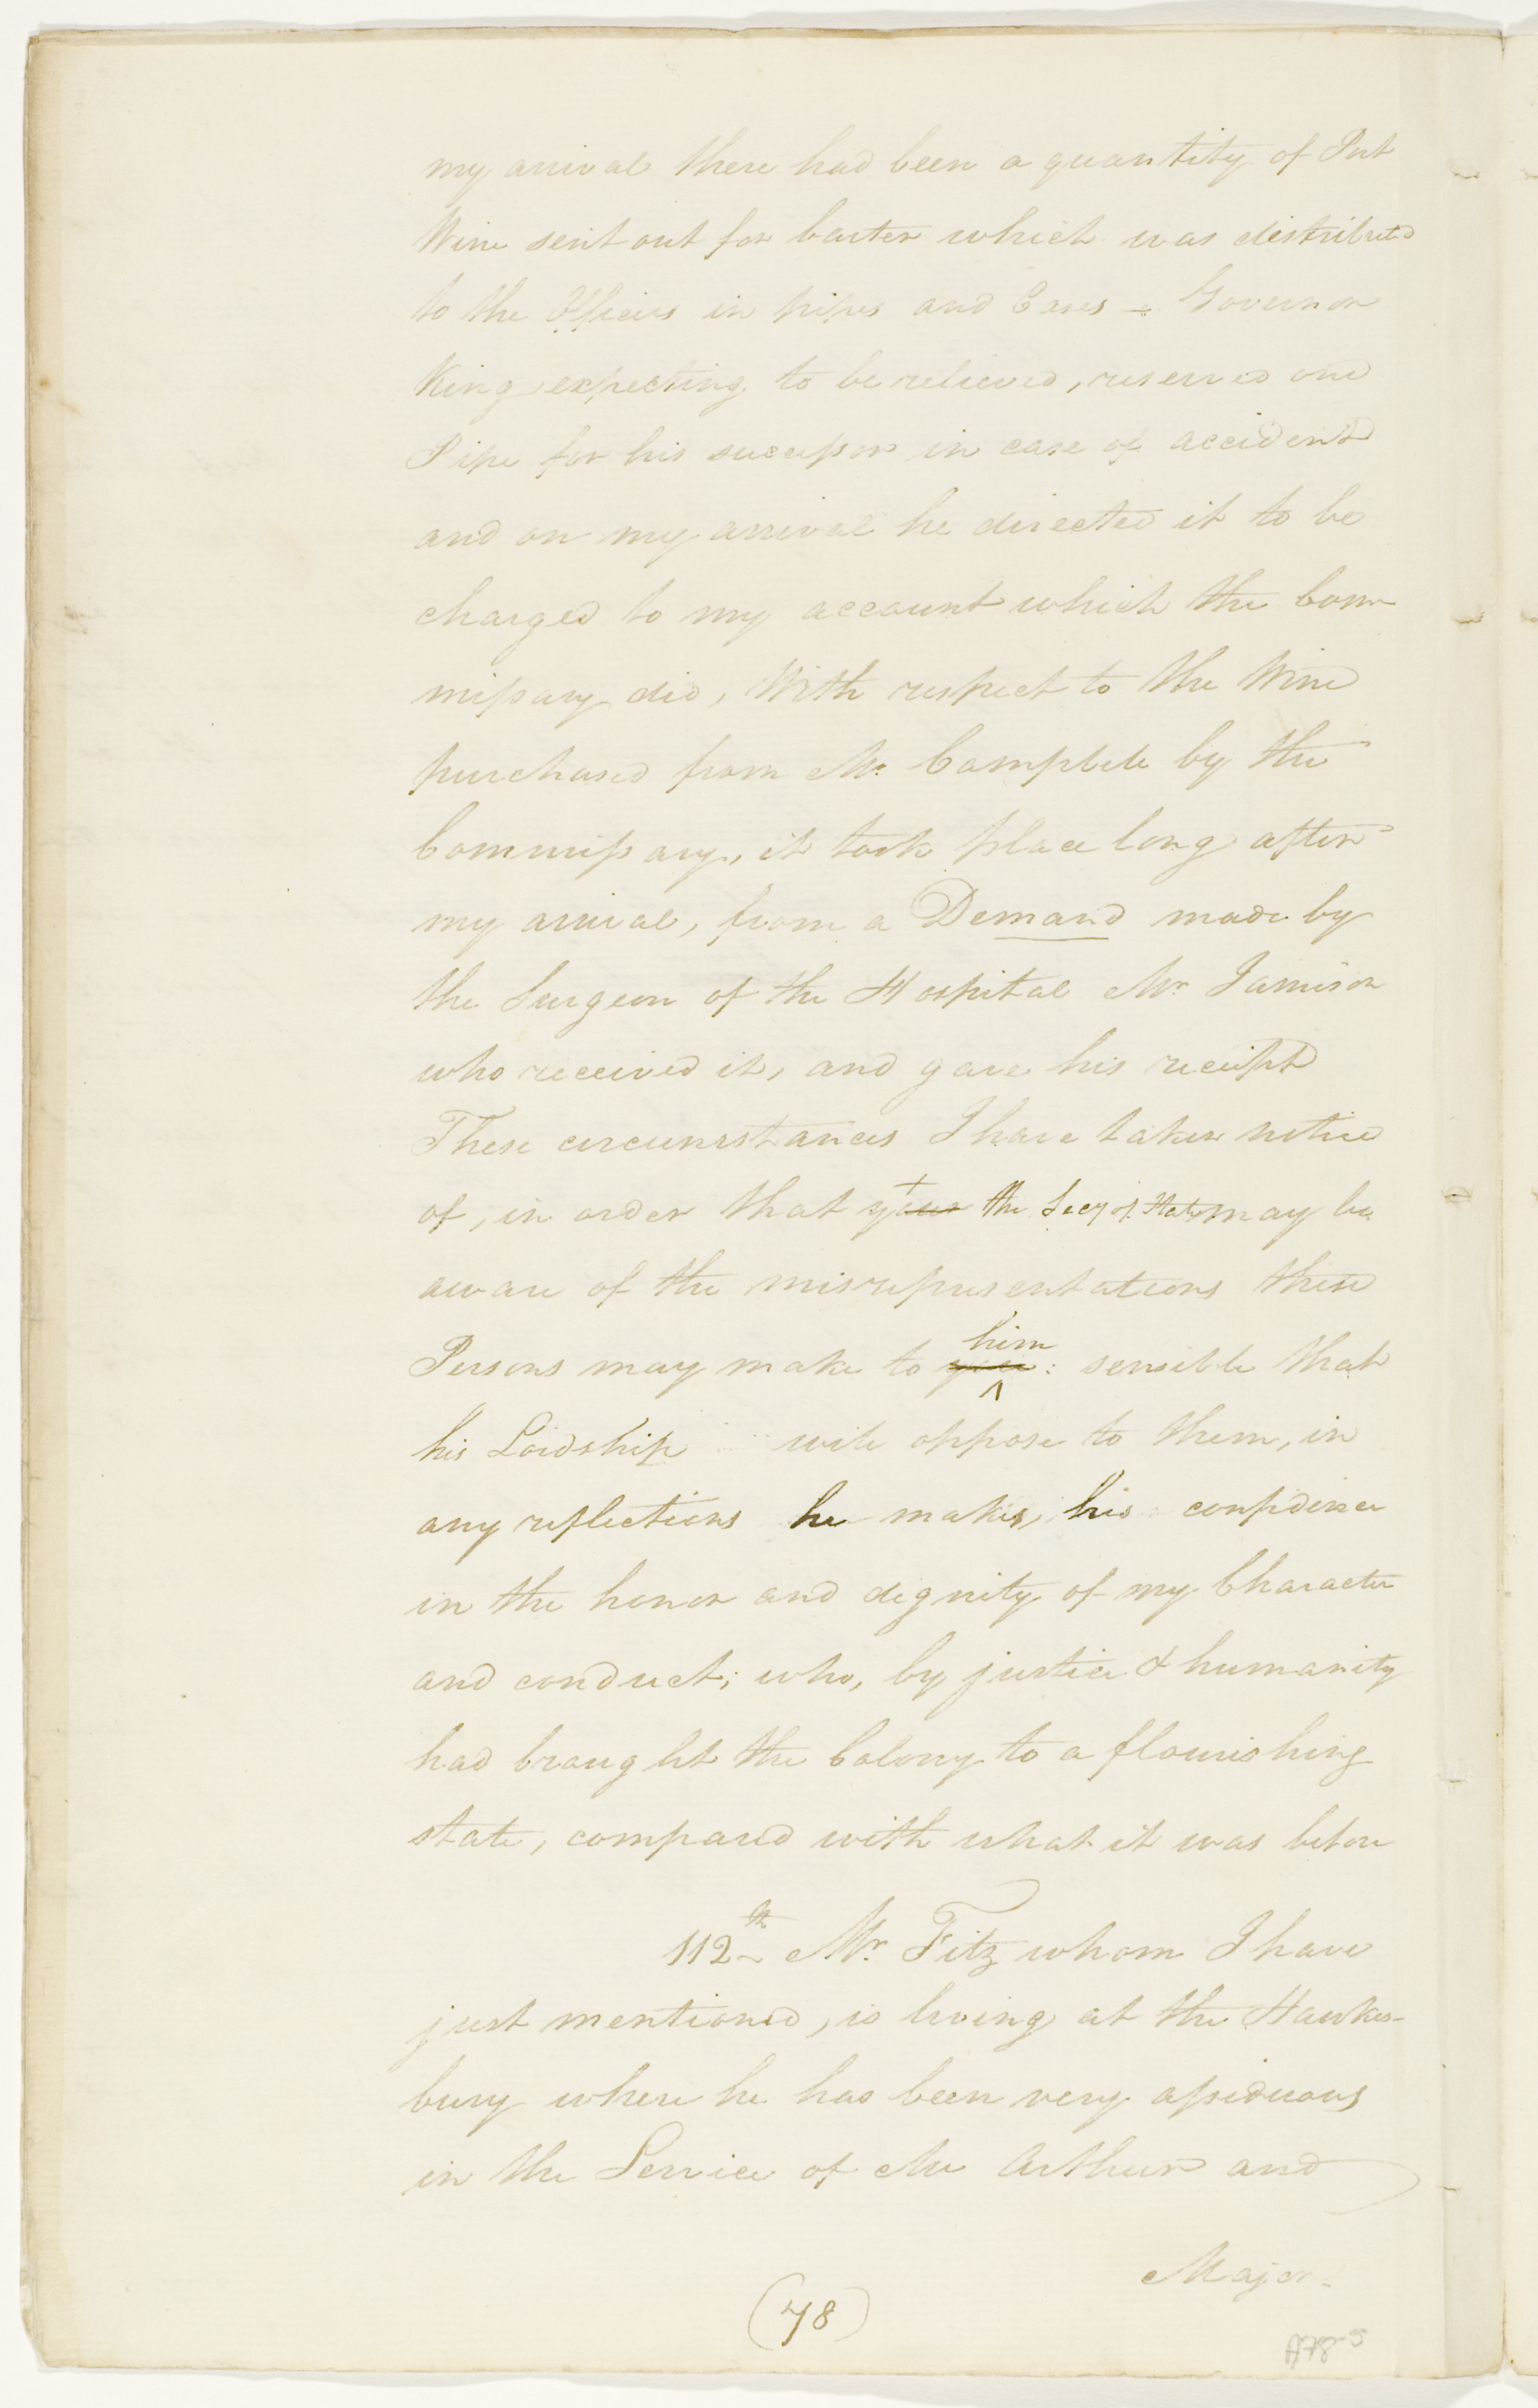 my arrival there had been a quantity of Port
Wine sent out for barter which was distributed
to the Officers in pipes and Cases – Governor
King expecting to be relieved, reserved one
Pipe for his successor in case of accident
and on my arrival he directed it to be
charged to my account which the Com
missary did, With respect to the Wine
purchased from Mr. Campbell by the
Commissary, it took place long after
my arrival, from a Demand made by
the Surgeon of the Hospital Mr Jamison
who received it, and gave his receipt
These circumstances I have taken notice
of, in order that your + the Secy of State may be
aware of the misrepresentations these
Persons may make to you him : sensible that
his Lordship will oppose to them, in
any reflections he makes, his confidence
in the honor and dignity of my Character
and conduct; who, by justice & humanity
had brought the Colony to a flourishing
state, compared with what it was before
112th Mr. Fitz whom I have
just mentioned, is living at the Hawkes-
bury where he has been very assiduous
in the Service of Mc Arthur and
Major
(78)